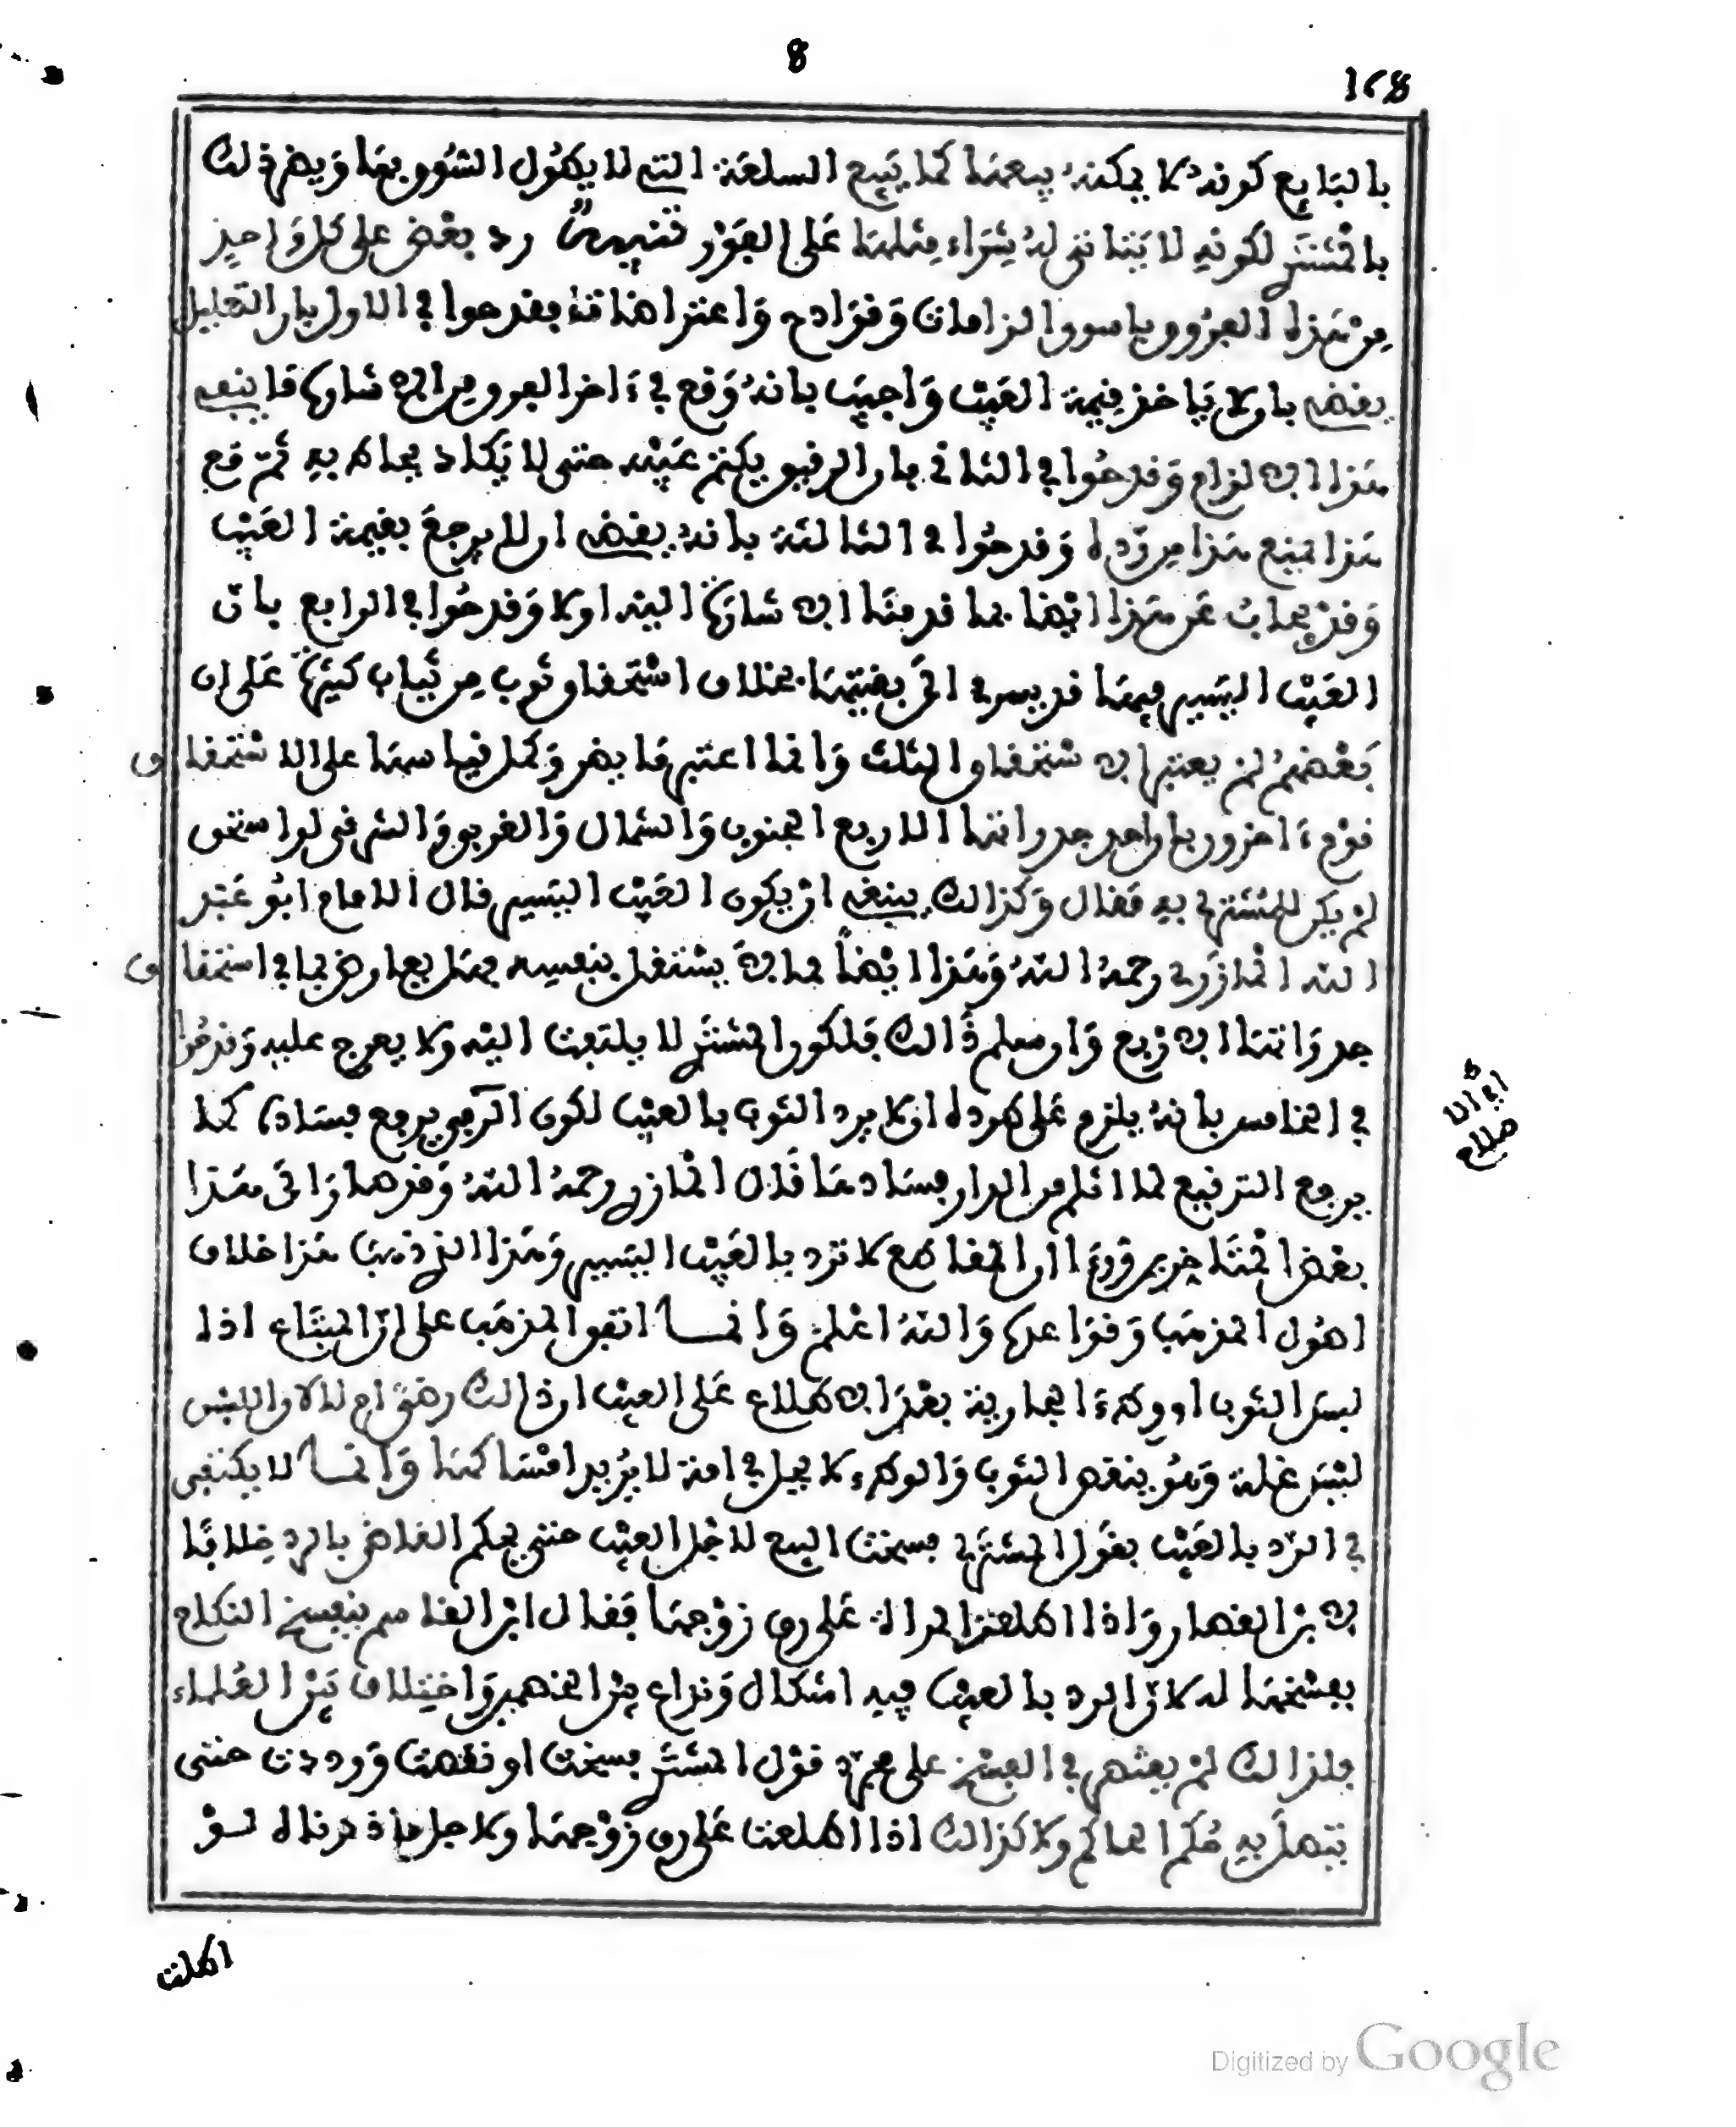 8
168
بالبايع كونه لا يمكنه بيعها كما يبيع السلعة التي لا يطول التسوق بها ويضر ذلك
بالمشتري لكونه لا يتأتى له شراء مثلها على الفور تنبيهان رد بعض على كل واحد
من هذه الفروق بأسوق الزامات وقوادح واعتراضات فقدحوا في الاول بأن التعليل
ينقض بأن لا يأخذ قيمة العيب وأجيب بأنه وقع في آخر الفرق من الإشارة ما ينفي
هذا الالزام وقدحوا في الثاني بأن الرقيق يكتم عيبه حتى لا يكاد يحاط به ثم مع
هذا لم يمنع هذا من رده وقدحوا في الثالثة بأنه ينقض ان لا يرجع بقيمة العيب
وقد يجاب عن هذا ايضا بما قدمنا الاشارة اليه اولا وقدحوا في الرابع بأن
العيب اليسير فيها قد يسري الى بقيتها بخلاف استحقاق ثوب من ثياب كثيرة على ان
بعضهم لم يعتبر استحقاق الثلث وانما اعتبر ما يضر وكل قياسها على الاستحقاق
قوم آخرون بأن واحد جدراتها الاربع الجنوب والشمال والغرب والشرق لو استحق
لم يكن للمشتري به مقال وكذلك ينبغي ان يكون العيب اليسير قال الامام ابو عبد
الله المازري رحمه الله وهذا ايضا مما لا يستقل بنفسه فهل يعارض بما في استحقاق
جدراتها الاربع وان سلم ذالك فلكون المشتري لا يلتفت اليه ولا يعرج عليه وقدحوا
في الخامس بأنه يلزم على طرده ان لا يرد الثوب بالعيب لكون الرفو يرفع فساده كما
يرفع الترقيع لما انثلم من الدار فسادها قال المازري رحمه الله وقد صار الى هذا
بعض المتأخرين ورءا ان المقاطع لا ترد بالعيب اليسير وهذا الذي ذهب هذا خلاف
اصول المذهب وقواعده والله اعلم وانما اتفق المذهب على ان المبتاع اذا
لبس الثوب او وطئ الجارية بعد الاطلاع على العيب ان ذالك رضى ام لا لان اللبس
ليس غلة وهو ينقص الثوب والوطء لا يحل في امة لا يريد امساكها وانما لا يكتفى
في الرد بالعيب بقول المشتري فسخت البيع لاجل العيب حتى يحكم القاضي بالرد خلافا
لابن القصار واذا اطلعت المرأة على رق زوجها فقال ابن القاسم ينفسخ النكاح
بفسخها له لان الرد بالعيب فيه اشكال ونزاع بين الخصمين واختلاف بين العلماء
فلذالك لم يقتصر في الفسخ على مجرد قول المشتري فسخت او نقضت ورددت حتى
يتصل به حكم الحاكم ولا كذالك اذا اطلعت على رق زوجها ولاجل ما ذكرناه لو
اطلعت